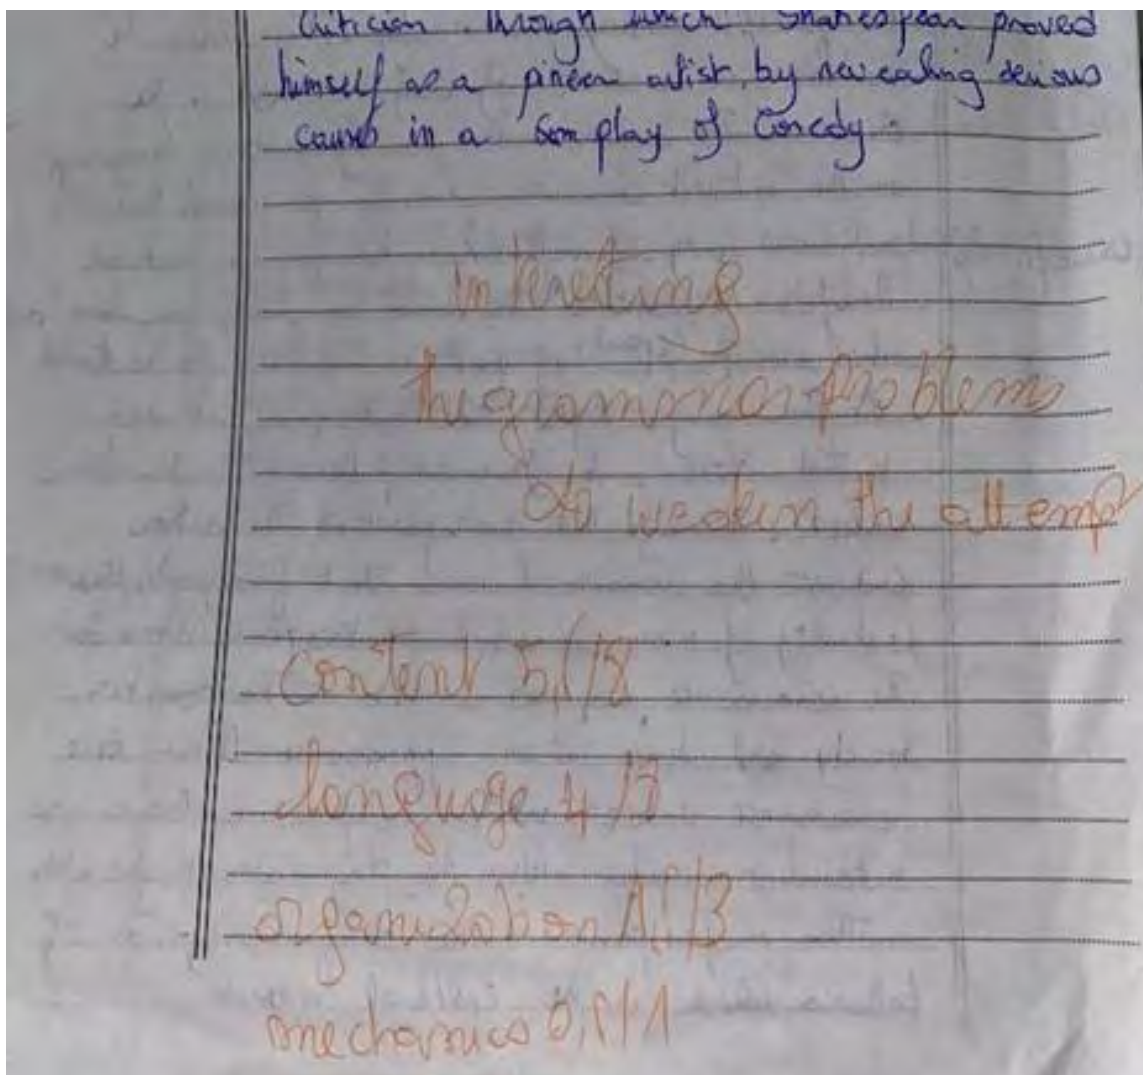 Criticism. through which Shakespear proved
himself as a pineer artist by revealing serious
causes in a play of Comedy.
interesting
the grammar problems
weaken the attempt
Content 5,5/8
language 4/
organization 1,5/3
mechanics 0,5/1